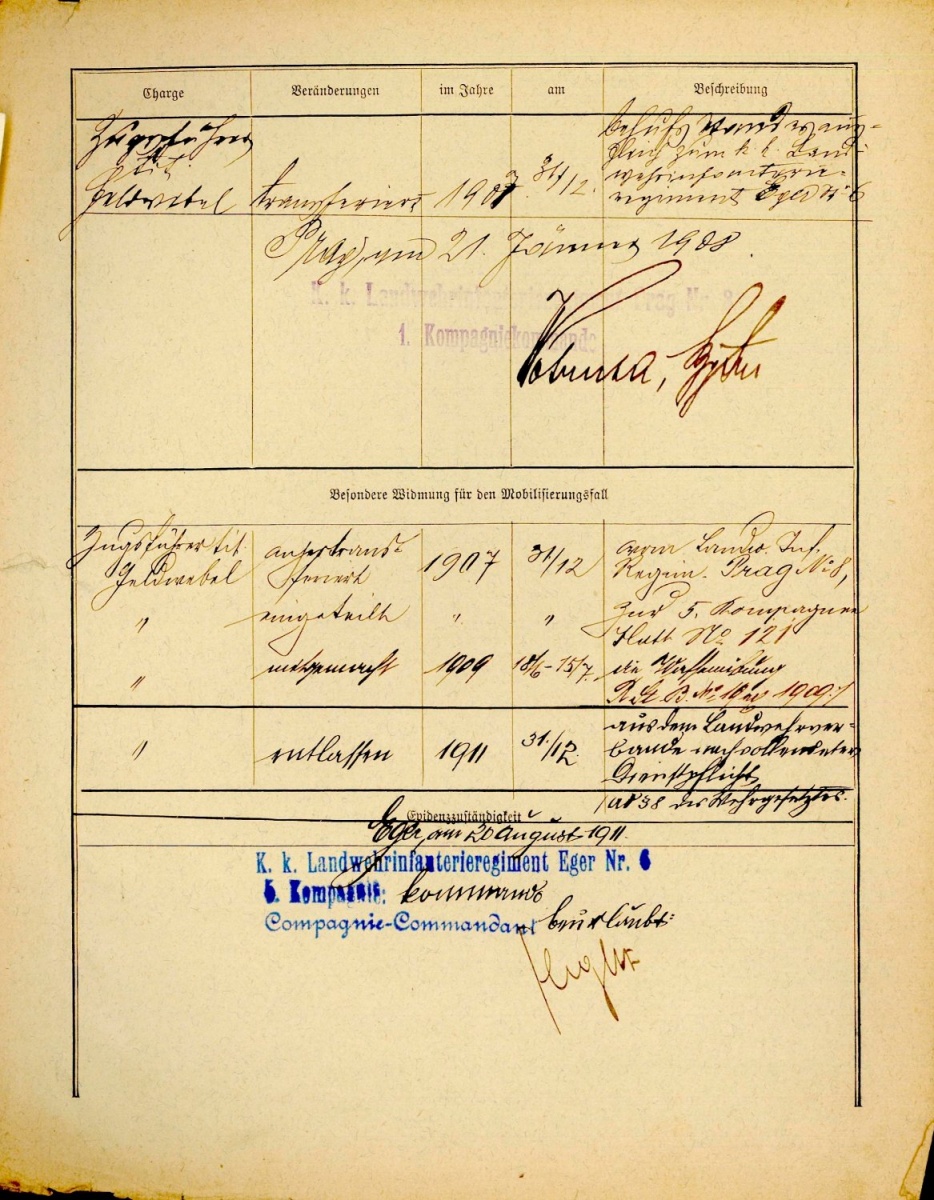 Charge Veränderungen im Jahre am Beschreibung
Zugsführer
tit.
Feldwebel transferiert 1907 31/12.
behufs Standesaus-
gleich zum k. k. Land-
wehrinfanterie-
regiment Eger Nº 6
Prag, am 21. Jänner 1908.
K. k. Landwehrinfanterieregiment Prag Nr. 8
1. Kompagniekommando
Besondere Widmung für den Mobilisierungsfall
Zugsführer tit. anher trans- vom Landw. Inf.
Feldwebel feriert 1907 31/12 Regim. Prag Nº 8,
" eingeteilt " " zur 5. Kompagnie
Blatt Nº 121
" mitgemacht 1909 18/6-15/7. die Waffenübung
1909
" entlassen 1911 31./12.
aus dem Landwehrver-
bande nach vollendeter
Dienstpflicht
des Wehrgesetzes.
Evidenzzuständigkeit
Eger, am 20 August 1911.
K. k. Landwehrinfanterieregiment Eger Nr. 6
5. Kompagnie: kommando
Compagnie-Commandant beurlaubt: